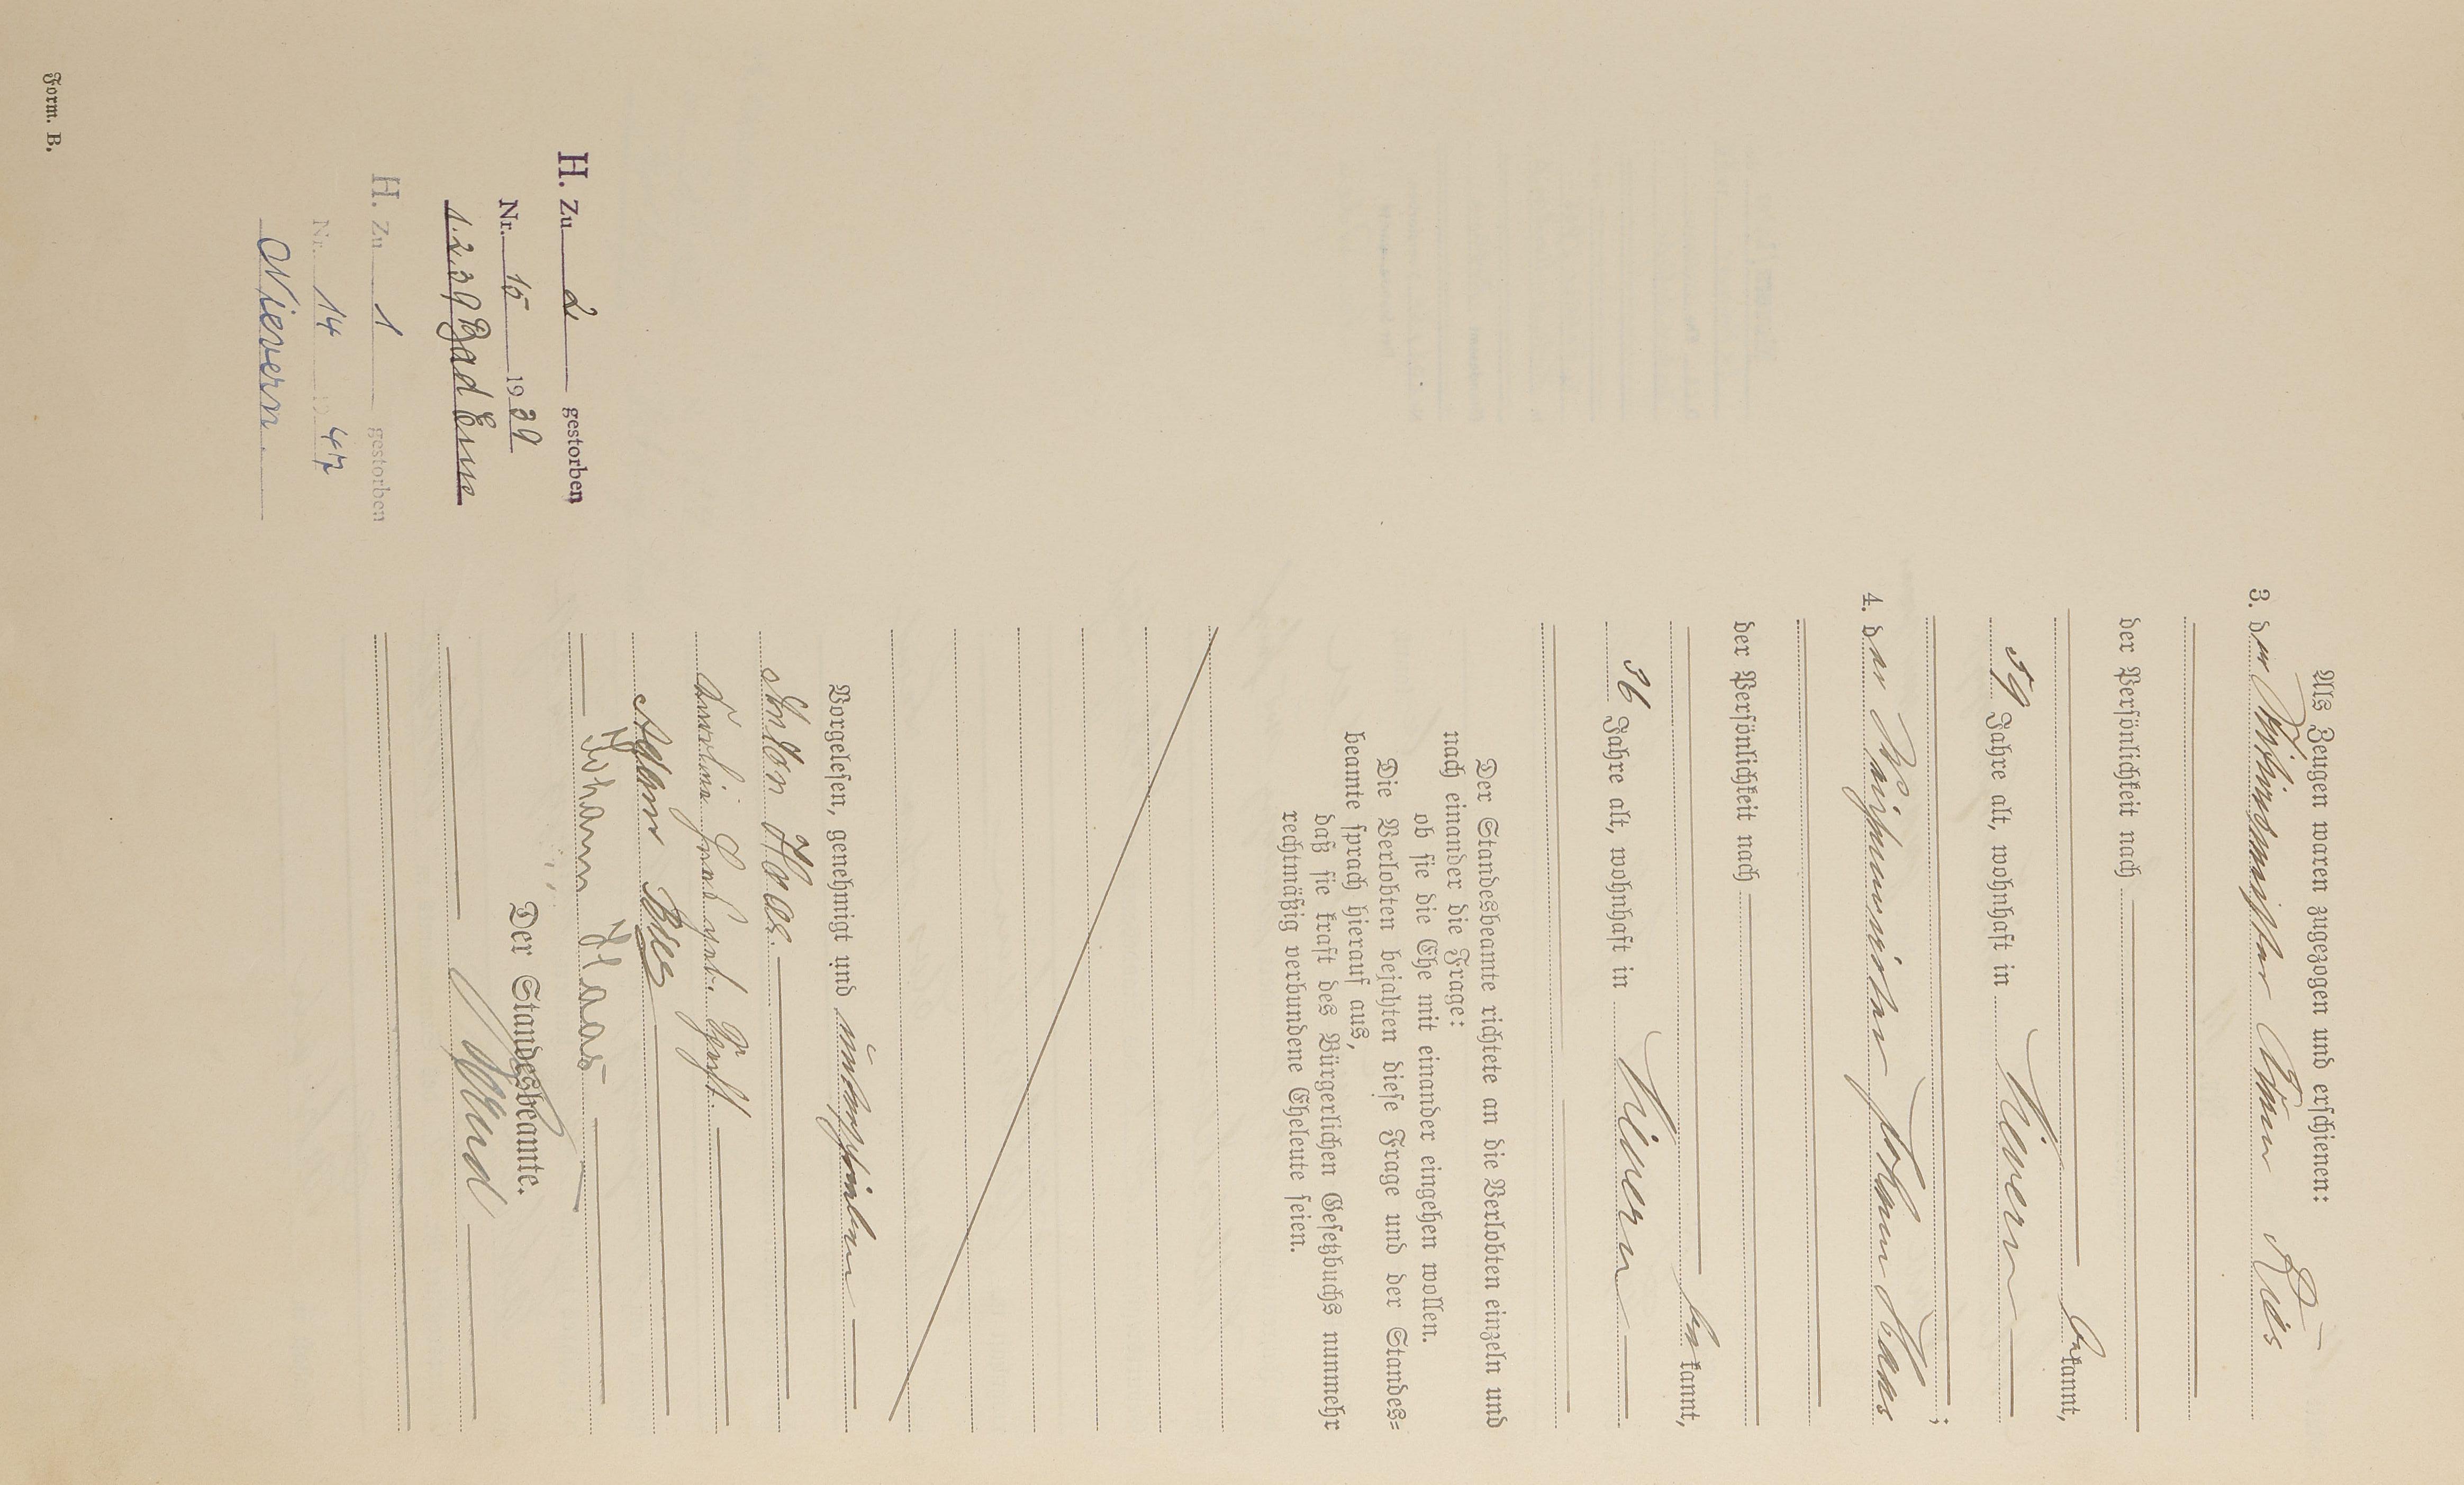 Als Zeugen waren zugezogen und erschienen:
3. der Adam Kies
der Persönlichkeit nach
bekannt,
59 Jahre alt, wohnhaft in Nievern
;
4. der Johann Haas
der Persönlichkeit nach
bekannt,
36 Jahre alt, wohnhaft in Nievern
Der Standesbeamte richtete an die Verlobten einzeln und
nach einander die Frage:
ob sie die Ehe mit einander eingehen wollen.
Die Verlobten bejahten diese Frage und der Standes-
beamte sprach hierauf aus,
daß sie kraft des Bürgerlichen Gesetzbuchs nunmehr
rechtmäßig verbundene Eheleute seien.
Vorgelesen, genehmigt und unterschrieben
Anton Haas.
Haas geb.
Adam Kies
Johann Haas
Der Standesbeamte.
H. Zu 2 gestorben
Nr. 15 1939
1.2.39 Bad Ems
H. Zu 1 gestorben
Nr. 14 1947
Nievern.
Form. B.